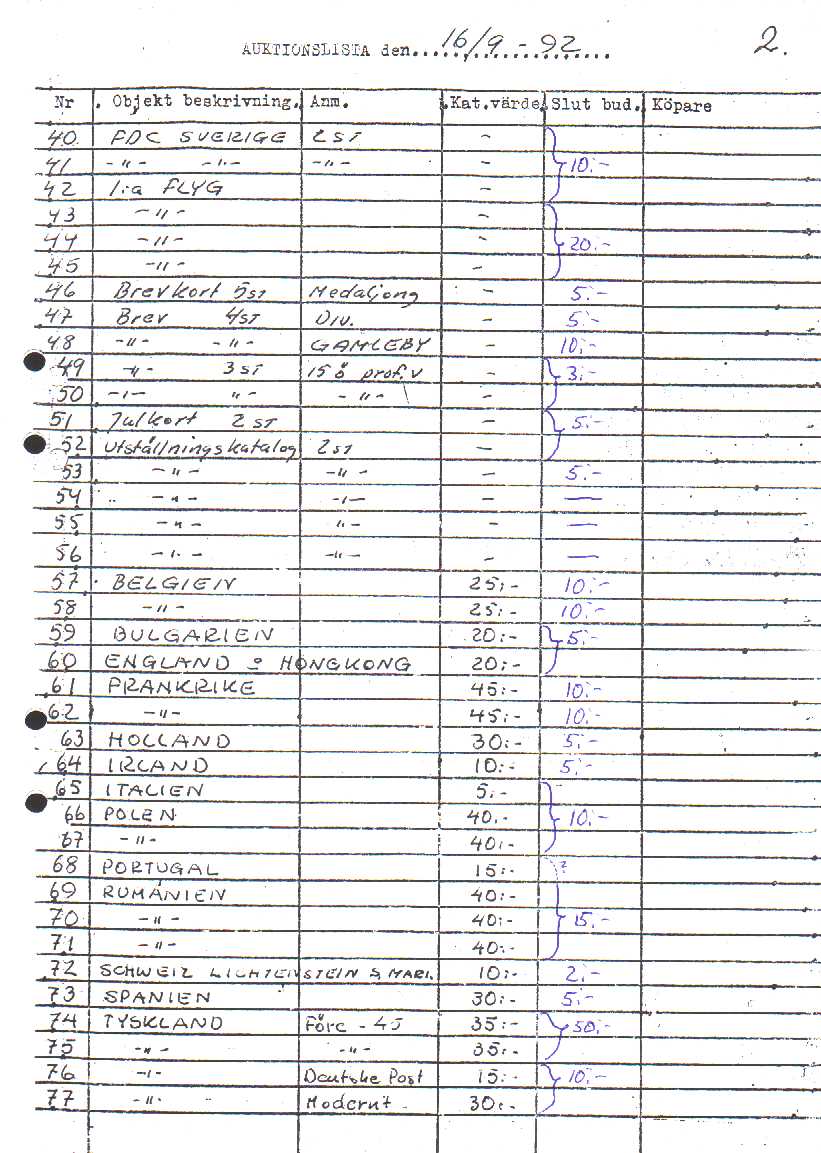 AUKTIONSLISTA den....16/9 - 92........
2.
Nr . Objekt beskrivning. Anm. .Kat.värde. Slut bud. Köpare
40 FDC SVERIGE 2 ST -
41 -"- -"- -"- - 10:-
42 1:a FLYG -
43 -"- -
44 -"- - 20.-
45 -"- -
46 Brevkort 5 ST Medaljong - 5:-
47 Brev 4 ST Div. - 5:-
48 -"- -"- GAMLEBY - 10:-
49 -"- 3 ST 15 ö prof.v - 3:-
50 -"- "- -"- -
51 Julkort 2 ST - 5:-
52 Utställningskatalog 2 st -
53 -"- -"- - 5:-
54 -"- -"- - -
55 -"- "- - -
56 -"- -"- - -
57 BELGIEN 25:- 10:-
58 -"- 25:- 10:-
59 BULGARIEN 20:- 5:-
60 ENGLAND o HONGKONG 20:-
61 FRANKRIKE 45:- 10:-
62 -"- 45:- 10:-
63 HOLLAND 30:- 5:-
64 IRLAND 10:- 5:-
65 ITALIEN 5:-
66 POLEN 40.- 10:-
67 -"- 40:-
68 PORTUGAL 15:- ?
69 RUMÄNIEN 40:-
70 -"- 40:- 15.-
71 -"- 40:-
72 SCHWEIZ LICHTENSTEIN S, MARI. 10:- 2:-
73 SPANIEN 30:- 5:-
74 TYSKLAND Före - 45 35:- 50:-
75 -"- -"- 35:-
76 -"- Deutshe Post 15:- 10:-
77 -"- Modernt 30:-